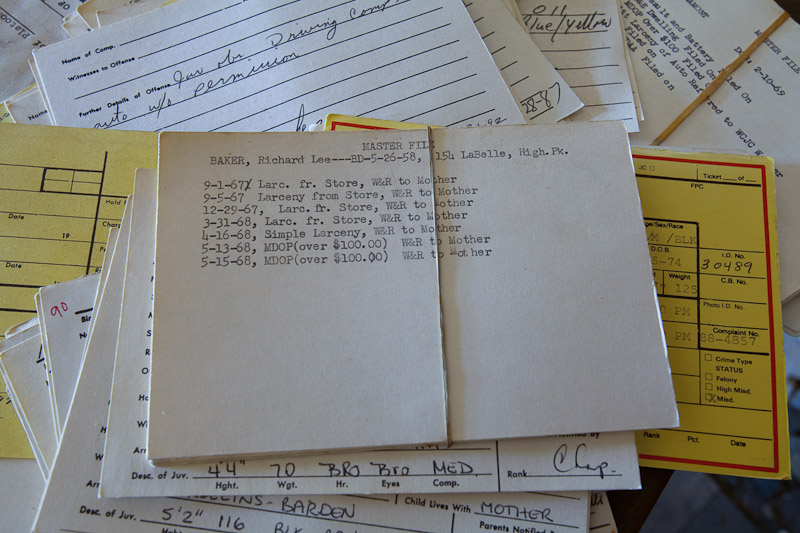 Name of Comp.
Witnesses to Offense
Further Details of Offense Juv obs Driving Comp
auto w/o permission
Blue/yellow
28-87
MASTER FILE
2-10-69
and Battery
Over $100 Filed On
Larceny of Auto Referred to WCJC
Filed on
MASTER FILE
BAKER, Richard Lee---BD-5-26-58, 154 LaBelle, High.Pk.
9-1-67 Larc. fr. Store, W&R to Mother
9-5-67 Larceny from Store, W&R to Mother
12-29-67, Larc. fr. Store, W&R to Mother
3-31-68, Larc. fr. Store, W&R to Mother
4-16-68, Simple Larceny, W&R to Mother
5-13-68, MDOP(over $100.00) W&R to Mother
5-15-68, MDOP(over $100.00) W&R to Mother
Date
19
Date
90
Ticket of
FPC
Age/Sex/Race
/BLK
D.O.B.
I.D. No.
5-74
30489
Weight
C.B. No.
125
Photo I.D. No.
PM
Complaint No.
PM
88-4857
Crime Type
STATUS
Felony
High Misd.
Misd.
Rank Pct. Date
Desc. of Juv. 4'4" 70 BRO BRO MED.
Hght. Wgt. Hr. Eyes Comp.
Rank
BARDEN
Child Lives With MOTHER
Desc. of Juv. 5'2" 116 BLK
Hght. Wgt.
Parents Notified